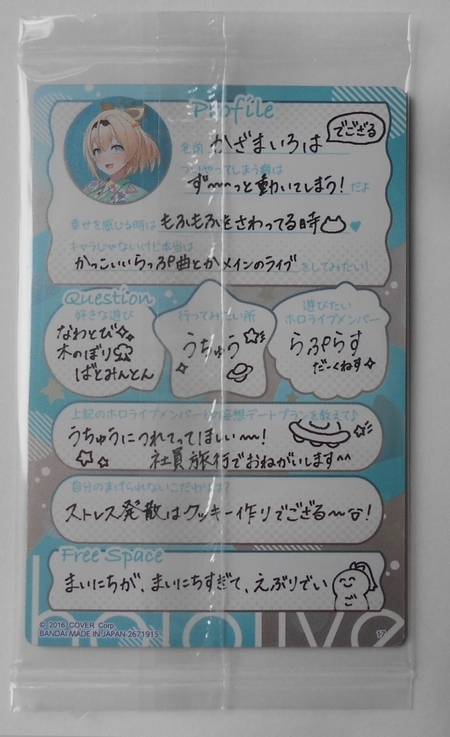 Profile
名前 かざまいろは
でござる
ついやってしまう癖は
ず〜〜っと動いてしまう! だよ
幸せを感じる時は もふもふをさわってる時
キャラじゃないけど本当は
かっこいいらっぷ曲とかメインのライブ をしてみたい!
Question
好きな遊び
なわとび
木のぼり
ばとみんとん
行ってみたい所
うちゅう
遊びたい
ホロライブメンバー
らぷらす
だーくねす
上記のホロライブメンバーとの妄想デートプランを教えて♪
うちゅうにつれてってほしい〜〜!
社員旅行でおねがいします^^
自分のまげられないこだわりは?
ストレス発散はクッキー作りでござる〜!
Free Space
まいにちが、まいにちすぎて、えぶりでい
ご
hololive
© 2016 COVER Corp.
BANDAI MADE IN JAPAN 2671915